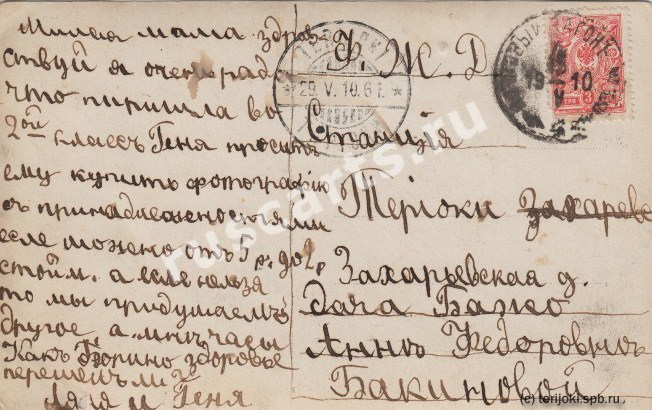 Милая мама здрав-
ствуй я очень рад
что пиришла во
2ой классъ Геня проситъ
ему купить фотографію
съ принадлежностями
если можено отъ 5 р. до 2 р
стоим. а если нельзя
то мы придумаемъ
другое а мнѣ часы
Какъ Борино здоровье
перешелъ ли
Ляля и Геня
Ф. Ж. Д
Станція
Теріоки Захаревс
Захарьевская д.
дача Бажо
Аннѣ Федоровнѣ
Бакиновой
29. V. 10.
19 10
ruscarts.ru
(c) terijoki.spb.ru